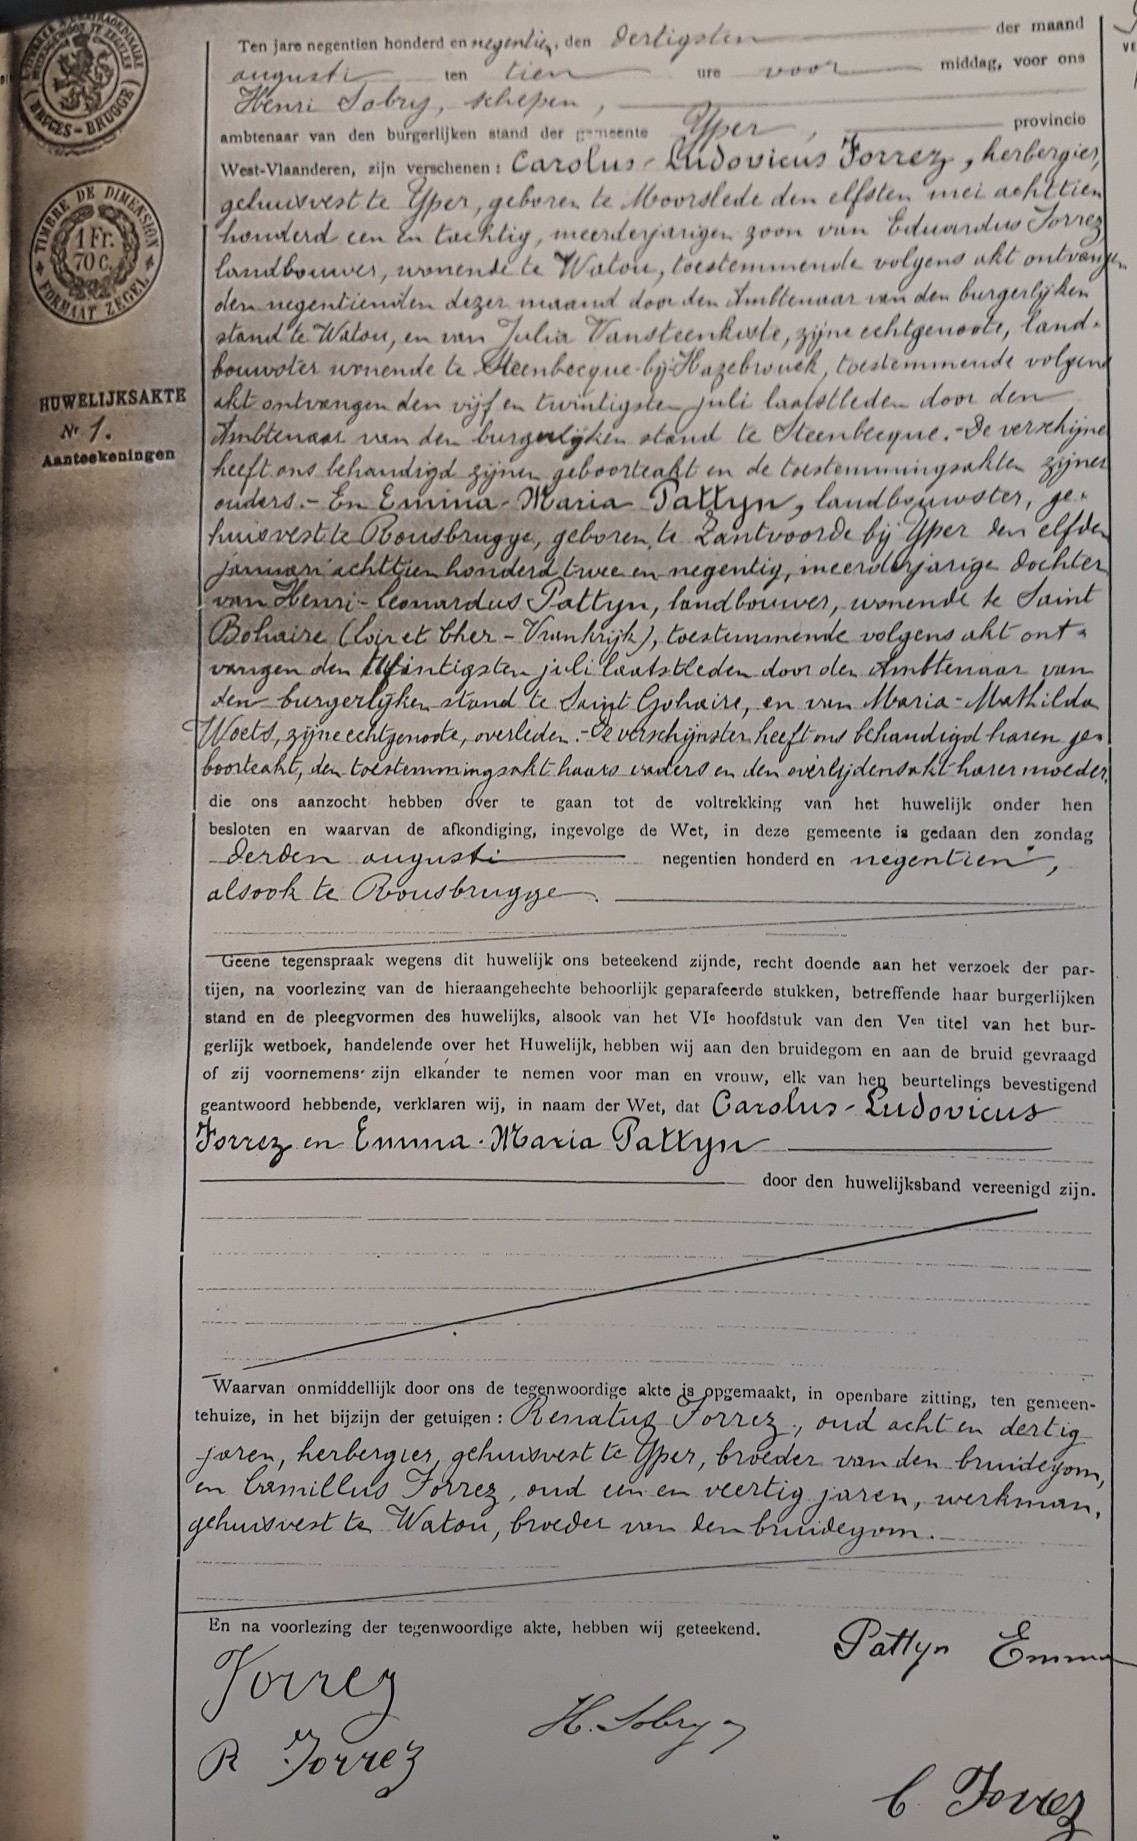 BRUGES-BRUGGE
TIMBRE DE DIMENSION
1 Fr.
70 c.
FORMAAT ZEGEL
HUWELIJKSAKTE
Nr 1.
Aanteekeningen
Ten jare negentien honderd en negentien, den dertigsten der maand
augusti ten tien ure voor middag, voor ons
Henri Sobry, schepen,
ambtenaar van den burgerlijken stand der gemeente Yper, provincie
West-Vlaanderen, zijn verschenen : Carolus-Ludovicus Forrez, herbergier,
gehuisvest te Yper, geboren te Moorslede den elfsten mei achttien
honderd een en tachtig, meerderjarigen zoon van Eduardus Forrez,
landbouwer, wonende te Watou, toestemmende volgens akt ontvangen
den negentienden dezer maand door den Ambtenaar van den burgerlijken
stand te Watou, en van Julia Vansteenkiste, zijne echtgenoote, land-
bouwster wonende te Steenbecque-bij-Hazebrouck, toestemmende volgens
akt ontvangen den vijf en twintigsten juli laatstleden door den
Ambtenaar van den burgerlijken stand te Steenbecque.- De verschijner
heeft ons behandigd zijnen geboorteakt en de toestemmingsakten zijner
ouders.- En Emma-Maria Pattyn, landbouwster, ge-
huisvest te Rousbrugge, geboren te Zantvoorde bij Yper den elfden
januari achttien honderd twee en negentig, meerderjarige dochter
van Henri-Leonardus Pattyn, landbouwer, wonende te Saint
Bohaire (Loir et Cher - Vrankrijk), toestemmende volgens akt ont-
vangen den twintigsten juli laatstleden door den Ambtenaar van
den burgerlijken stand te Saint Bohaire, en van Maria-Mathilda
Woets, zijne echtgenoote, overleden.- De verschijnster heeft ons behandigd haren ge-
boorteakt, den toestemmingsakt haars vaders en den overlijdensakt harer moeder,
die ons aanzocht hebben over te gaan tot de voltrekking van het huwelijk onder hen
besloten en waarvan de afkondiging, ingevolge de Wet, in deze gemeente is gedaan den zondag
derden augusti negentien honderd en negentien,
alsook te Rousbrugge.
Geene tegenspraak wegens dit huwelijk ons beteekend zijnde, recht doende aan het verzoek der par-
tijen, na voorlezing van de hieraangehechte behoorlijk geparafeerde stukken, betreffende haar burgerlijken
stand en de pleegvormen des huwelijks, alsook van het VIe hoofdstuk van den Ven titel van het bur-
gerlijk wetboek, handelende over het Huwelijk, hebben wij aan den bruidegom en aan de bruid gevraagd
of zij voornemens zijn elkander te nemen voor man en vrouw, elk van hen beurtelings bevestigend
geantwoord hebbende, verklaren wij, in naam der Wet, dat Carolus-Ludovicus
Forrez en Emma-Maria Pattyn
door den huwelijksband vereenigd zijn.
Waarvan onmiddelijk door ons de tegenwoordige akte is opgemaakt, in openbare zitting, ten gemeen-
tehuize, in het bijzijn der getuigen : Renatus Forrez, oud acht en dertig
jaren, herbergier, gehuisvest te Yper, broeder van den bruidegom,
en Camillus Forrez, oud een en veertig jaren, werkman,
gehuisvest te Watou, broeder van den bruidegom.
En na voorlezing der tegenwoordige akte, hebben wij geteekend.
Pattyn Emma
Forrez
H. Sobry
R Forrez
C Forrez